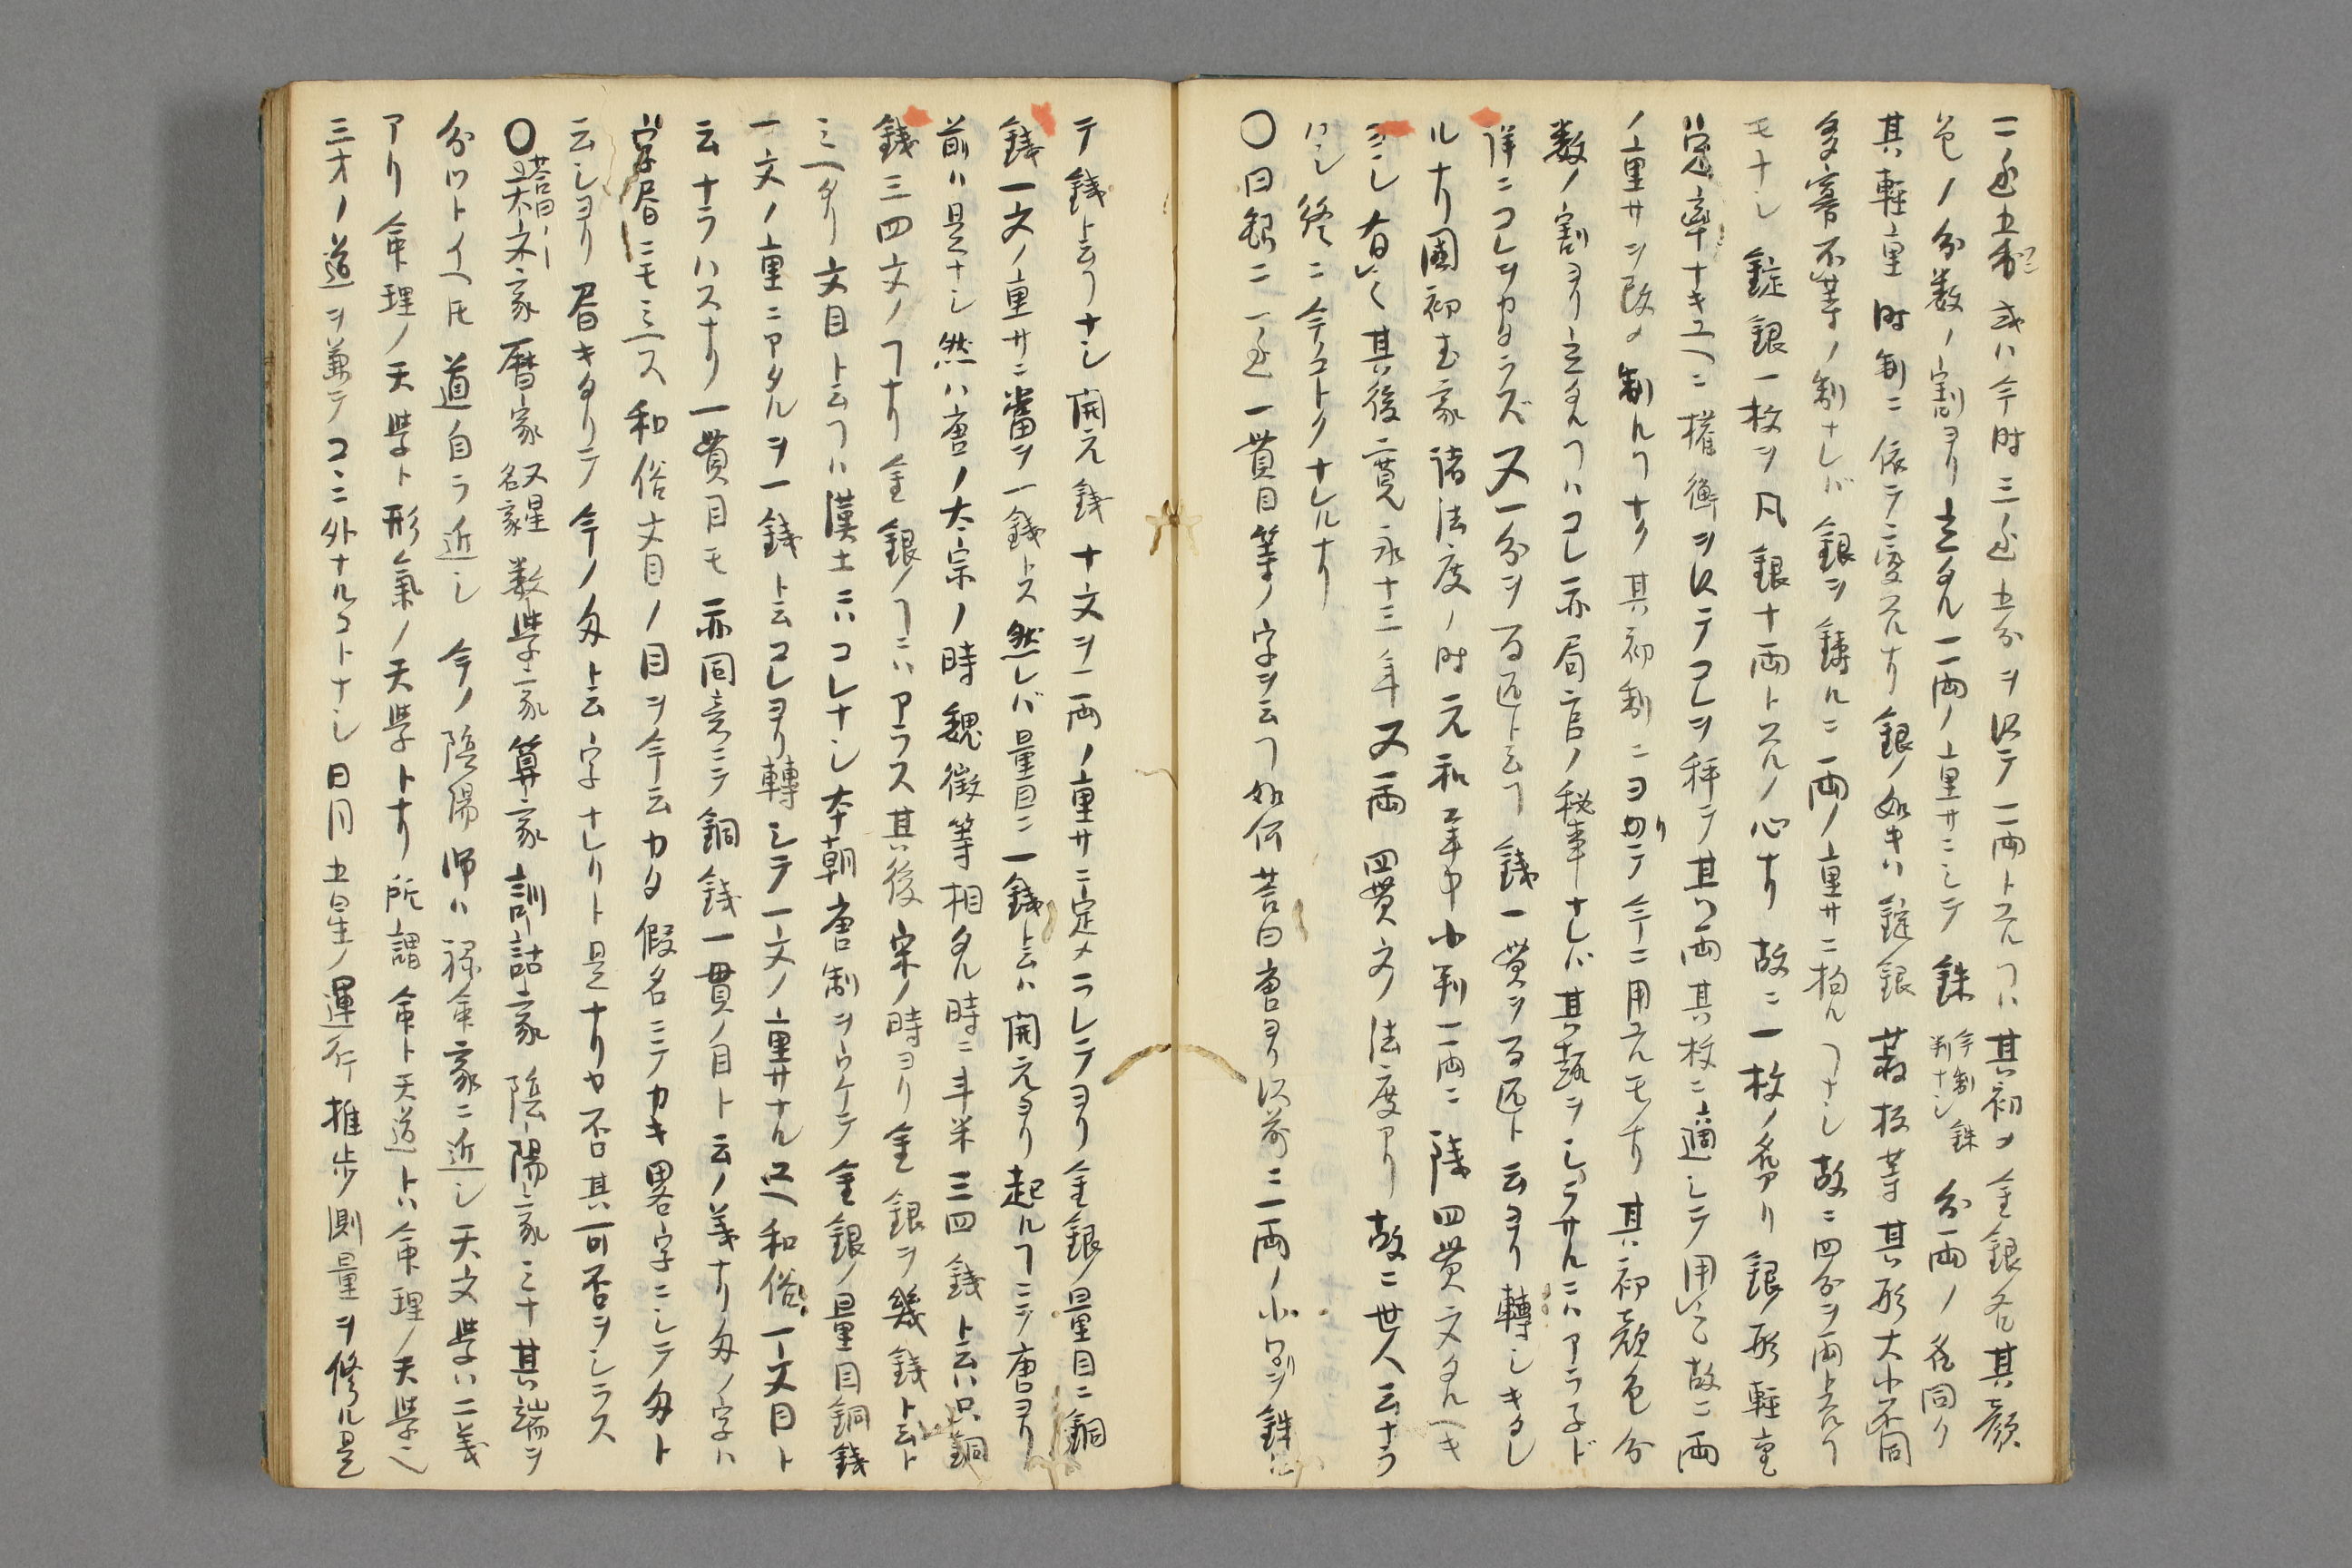 二匁五分 或ハ今時三匁五分ヲ以テ一両トスルヿハ其初メ金銀各其顔
色ノ分数ノ割ヨリ立タル一両ノ重サニシテ銖 今制銖判ナシ 分両ノ名同ク
其軽重時制ニ依テ変スルナリ銀ノ如キハ錠銀 枚等其形大小不同
多寡不等ノ制ナレバ銀ヲ鋳ルニ一両ノ重サニ拘ルヿナシ故ニ四分ヲ両トスルヿ
モナシ錠銀一枚ヲ凡銀十両トスルノ心ナリ故ニ一枚ノ名アリ銀ノ形軽重
定率ナキユヘニ権衡ヲ以テコレヲ秤テ其両其枚ニ適シテ用ユ故ニ両
ノ重サヲ改メ制ルヿナク其初制ニヨリテ今ニ用ユルモノナリ其初顔色分
数ノ割ヨリ立タルヿハコレ亦局官ノ秘事ナレバ其趣ヲシラサルニハアラ子ド
詳ニコレヲカタラズ又一分ヲ百疋ト云ヿ銭一貫ヲ百疋ト云ヨリ轉シキタレ
ルナリ國初武家諸法度ノ時元和年中小判一両ニ銭四貫文タルヘキ
ヨシ 其後寛永十三年又両四貫文ノ法度アリ故ニ世人云ナラ
ハシ終ニ今コトクナレルナリ
〇曰銀ニ一匁一貫目等ノ字ヲ云ヿ如何答曰唐ヨリ以前ニ一両ノ小割ヲ銖
テ銭ト云ヿナシ開元銭十文ヲ一両ノ重サニ定メラレテヨリ金銀ノ量目ニ銅
銭一文ノ重サニ當ヲ一銭トス然レバ量目ニ一銭ト云ハ開元ヨリ起ルヿニテ唐ヨリ
前ハ是ナシ然ハ唐ノ太宗ノ時魏徴等相タル時ニ斗米三四銭ト云ハ只銅
銭三四文ノヿナリ金銀ノヿニハアラス其後宋ノ時ヨリ金銀ヲ幾銭ト云ト
ミヘタリ文目ト云ヿハ漢土ニハコレナシ本朝唐制ヲウケテ金銀ノ量目銅銭
一文ノ重ニアタルヲ一銭ト云コレヨリ轉シテ一文ノ重サナルユヘ和俗一文目ト
云ナラハスナリ一貫目モ亦同意ニテ銅銭一貫ノ目ト云ノ義ナリ匁ノ字ハ
字書ニモミヘス和俗文目ノ目ヲ今云カタ假名ミテカキ畧字ニシテ匁ト
云シヨリ書キタリテ今ノ匁ト云字ナレリト是ナリカ否其可否ヲシラス
〇答曰天文家暦家 又星家名 数學家算家訓詁家陰陽家ミナ其端ヲ
分ツトイヘ𪜈道自ラ近シ今ノ陰陽師ハ禄命家ニ近シ天文學ハ二義
アリ命理ノ天學ト形氣ノ天學トナリ所謂命ト天道トハ命理ノ天學也
三才ノ道ヲ兼テコヽニ外ナルコトナシ日月五星ノ運行推歩測量ヲ修ル是